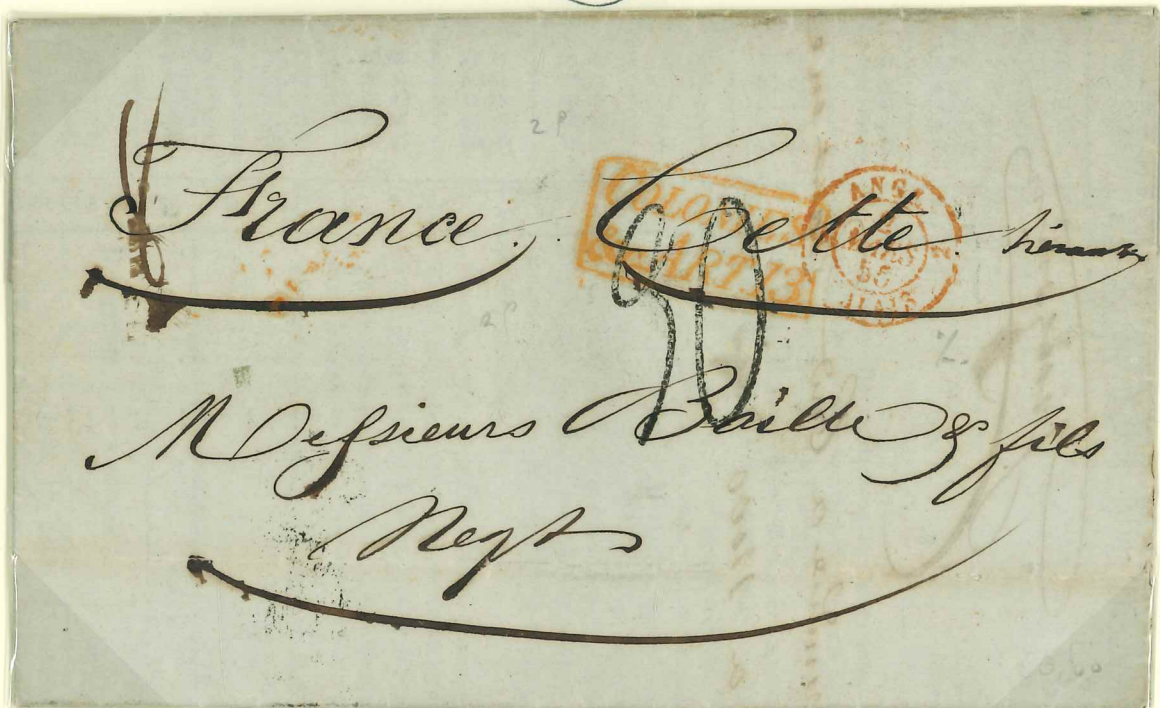 2 P
France. Cette hérault
COLONIES
& ART. 13
ANG. 2
55
30
Messieurs Baille & fils
Negts